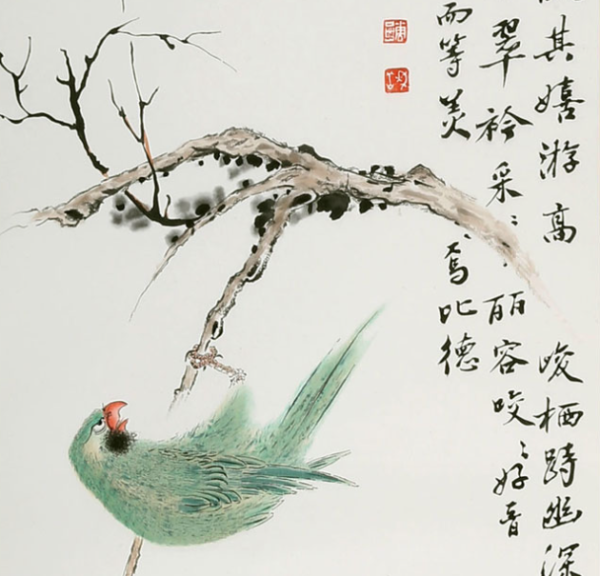 其嬉游高峻栖跱幽深
翠衿采〻丽容咬〻好音
而等美焉比德